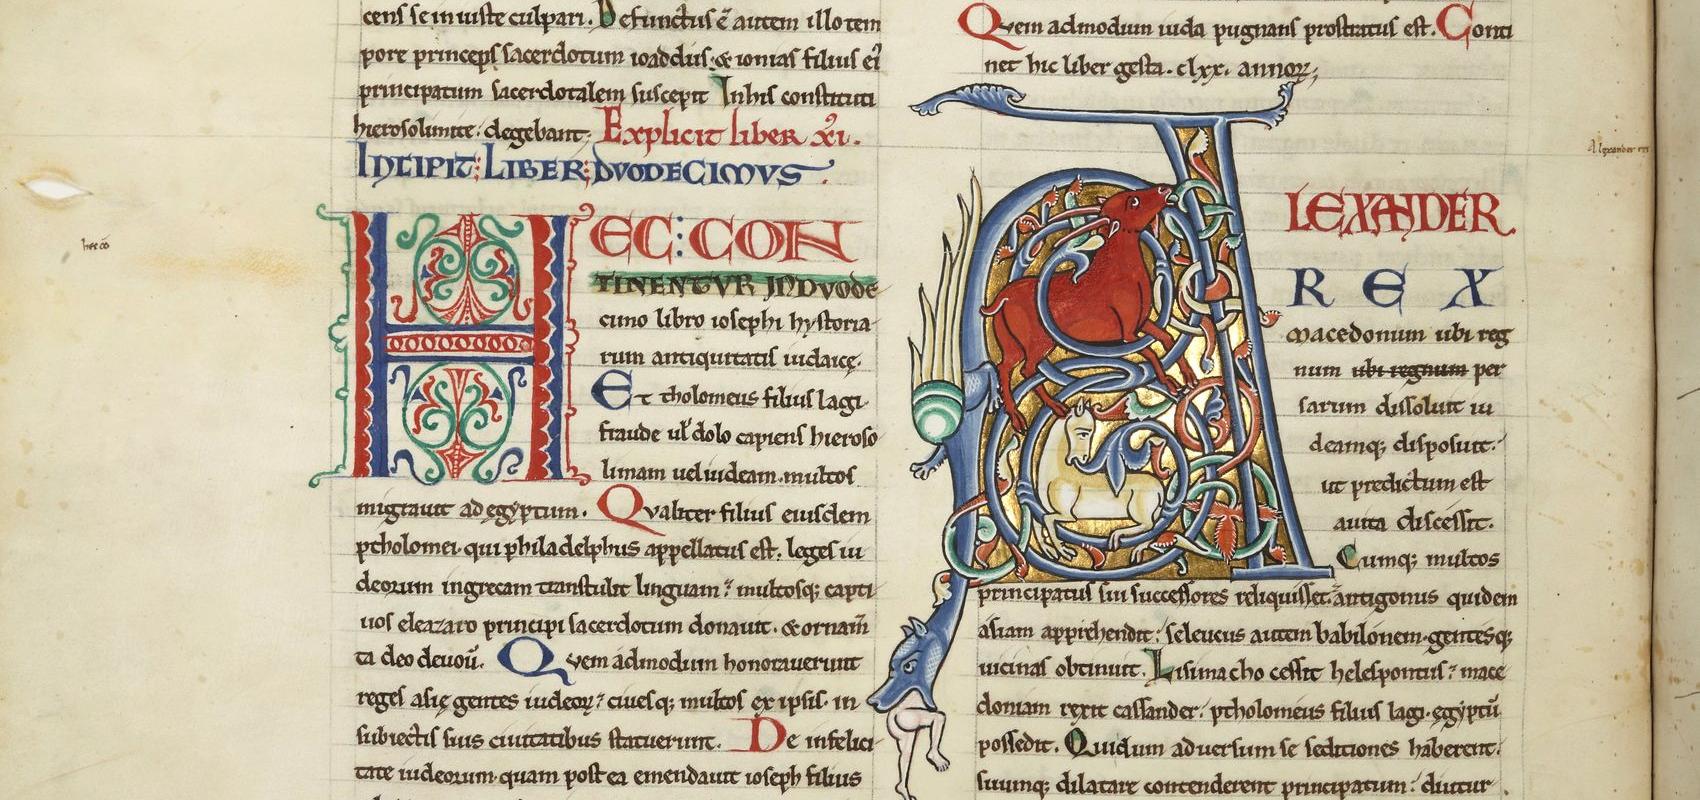 cens se iniuste culpari. Defunctus ē autem illo tem
pore princeps sacerdotum ioaddus. & ionias filius ei᾿
principatum sacerdotalem suscepit In his constituti
hierosolimite. degebant; Explicit liber xi.
Incipit: Liber: duodecimus.
HEC: CON
TINENTUR IN DUODE
cimo libro iosephi hystoria
rum antiquitatis iudaicę.
Et tholomeus filius lagi
fraude ul᾿ dolo capiens hieroso
limam uel iudeam. multos
migrauit ad egyptum. Qualiter filius eiusdem
ptholomei. qui philadelphus appellatus est. leges iu
deorum in grecam transtulit linguam? multosq; capti
uos eleazaro principi sacerdotum donauit. & ornam̄
ta deo deuoū. Quem admodum honorauerunt
reges asię gentes iudeoꝝ? ciuesq; multos ex ipsis. in
subiectis suis ciuitatibus statuerunt. De infelici
tate iudeorum. quam post ea emendauit ioseph filius
Quem admodum iuda pugnans prostratus est. Conti
net hic liber gesta. clxx. annoꝝ;
ALEXANDER
REX
macedonum ubi reg
num ubi regnum per
sarum dissoluit iu
deamq; disposuit.
ut predictum est
auita discessit.
Cumq; multos
principatus sui successores reliquisset. antigonus quidem
asiam apprehendit. seleucus autem babilonem. gentesq;
uicinas obtinuit. Lisimacho cessit helespontus? mace
doniam rexit cassander. ptholomeus filius lagi. egyptū
possedit. Qui dum aduersum se seditiones haberent.
suumq; dilatare contenderent principatum. diutur
hec cō